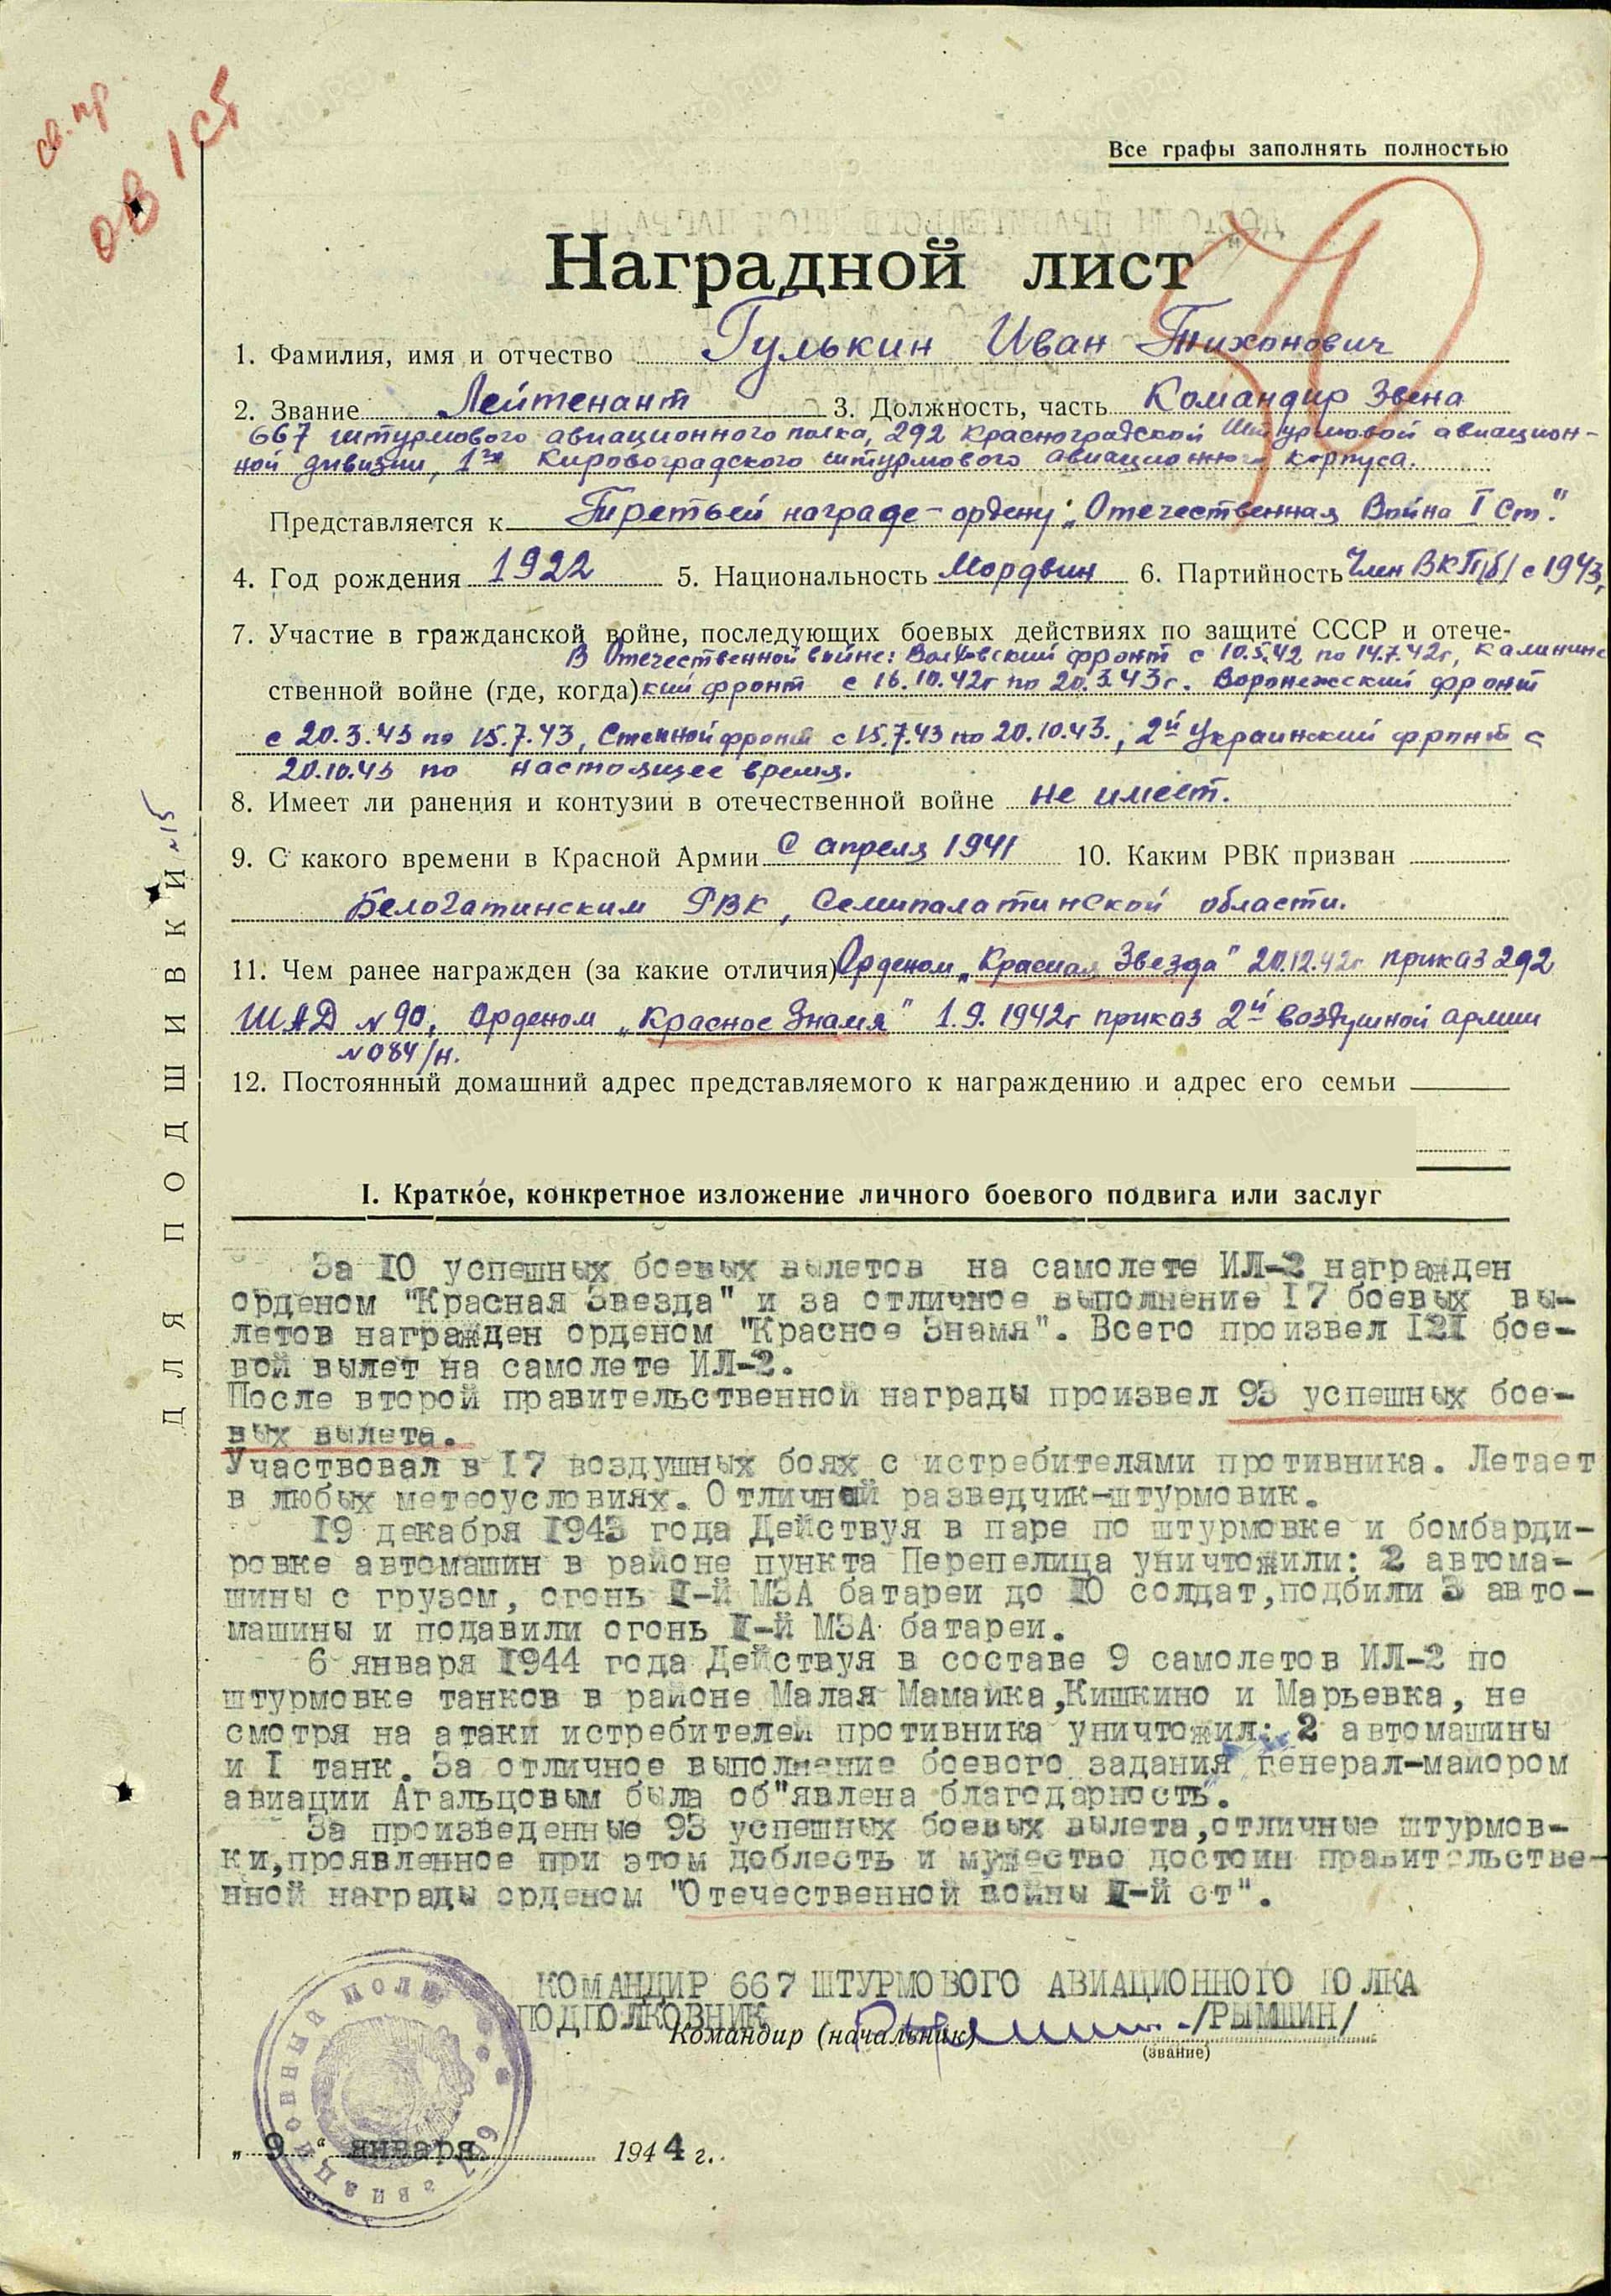 св. пр
ОВ 1 ст
Все графы заполнять полностью
Наградной лист
1. Фамилия, имя и отчество Гулькин Иван Тихонович
2. Звание Лейтенант 3. Должность, часть Командир Звена
667 штурмового авиационного полка, 292 Красноградской Штурмовой авиацион-
ной дивизии, 1го Кировоградского штурмового авиационного корпуса.
Представляется к Третьей награде - ордену „Отечественная Война I Ст."
4. Год рождения 1922 5. Национальность Мордвин 6. Партийность Член ВКП/б/ с 1943,
7. Участие в гражданской войне, последующих боевых действиях по защите СССР и отече-
В Отечественной войне: Волховский фронт с 10.5.42 по 14.7.42г, Калининс
ственной войне (где, когда) кий фронт с 16.10.42г по 20.3.43г. Воронежский фронт
с 20.3.43 по 15.7.43, Степной фронт с 15.7.43 по 20.10.43., 2й Украинский фронт с
20.10.43 по настоящее время.
8. Имеет ли ранения и контузии в отечественной войне не имеет.
9. С какого времени в Красной Армии С апреля 1941 10. Каким РВК призван
Белогатинским РВК, Семипалатинской области.
11. Чем ранее награжден (за какие отличия) Орденом „Красная Звезда" 20.12.42г приказ 292
ШАД №90, Орденом „Красное Знамя" 1.9.1942г приказ 2й воздушной армии
№084/н.
12. Постоянный домашний адрес представляемого к награждению и адрес его семьи
I. Краткое, конкретное изложение личного боевого подвига или заслуг
За 10 успешных боевых вылетов на самолете ИЛ-2 награжден
орденом "Красная Звезда" и за отличное выполнение 17 боевых вы-
летов награжден орденом "Красное Знамя". Всего произвел 121 бое-
вой вылет на самолете ИЛ-2.
После второй правительственной награды произвел 93 успешных бое-
вых вылета.
Участвовал в 17 воздушных боях с истребителями противника. Летает
в любых метеоусловиях. Отличный разведчик-штурмовик.
19 декабря 1943 года Действуя в паре по штурмовке и бомбарди-
ровке автомашин в районе пункта Перепелица уничтожили: 2 автома-
шины с грузом, огонь I-й МЗА батареи до 10 солдат,подбили 3 авто-
машины и подавили огонь I-й МЗА батареи.
6 января 1944 года Действуя в составе 9 самолетов ИЛ-2 по
штурмовке танков в районе Малая Мамайка,Кишкино и Марьевка, не
смотря на атаки истребителей противника уничтожил: 2 автомашины
и I танк. За отличное выполнение боевого задания генерал-майором
авиации Агальцовым была об"явлена благодарность.
За произведенные 93 успешных боевых вылета,отличные штурмов-
ки,проявленное при этом доблесть и мужество достоин правительстве-
нной награды орденом "Отечественной войны I-й ст".
КОМАНДИР 667 ШТУРМОВОГО АВИАЦИОННОГО ПОЛКА
ПОДПОЛКОВНИК /РЫМШИН/
Командир (начальник)
(звание)
„ 9 " января 1944 г.
ДЛЯ ПОДШИВКИ
№15